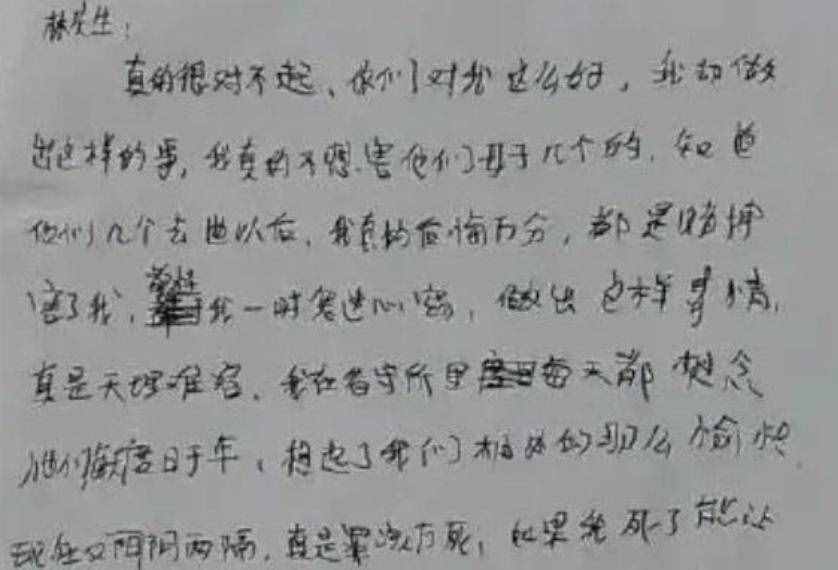 林先生:
真的很对不起、你们对我这么好,我却做
出这样的事,我真的不想害他们母子几个的.知道
他们几个去世以后、我真的后悔万分,都是赌博
害了我、我一时鬼迷心窍,做出这样事情,
真是天理难容、我在看守所里每天都想念
他们度日于年、想起了我们相处的那么愉快
现在又阴阳两隔.真是罪该万死,如果我死了能让